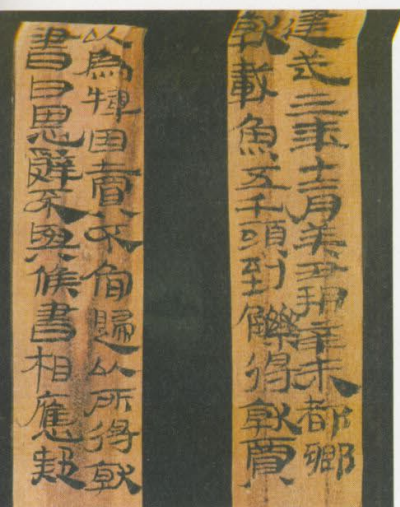 建武三年十二月癸丑朔辛未都鄉
就載魚五千頭到觻得就賈
以為犅因賣不肯歸以所得就
書曰恩辭不與候書相應疑